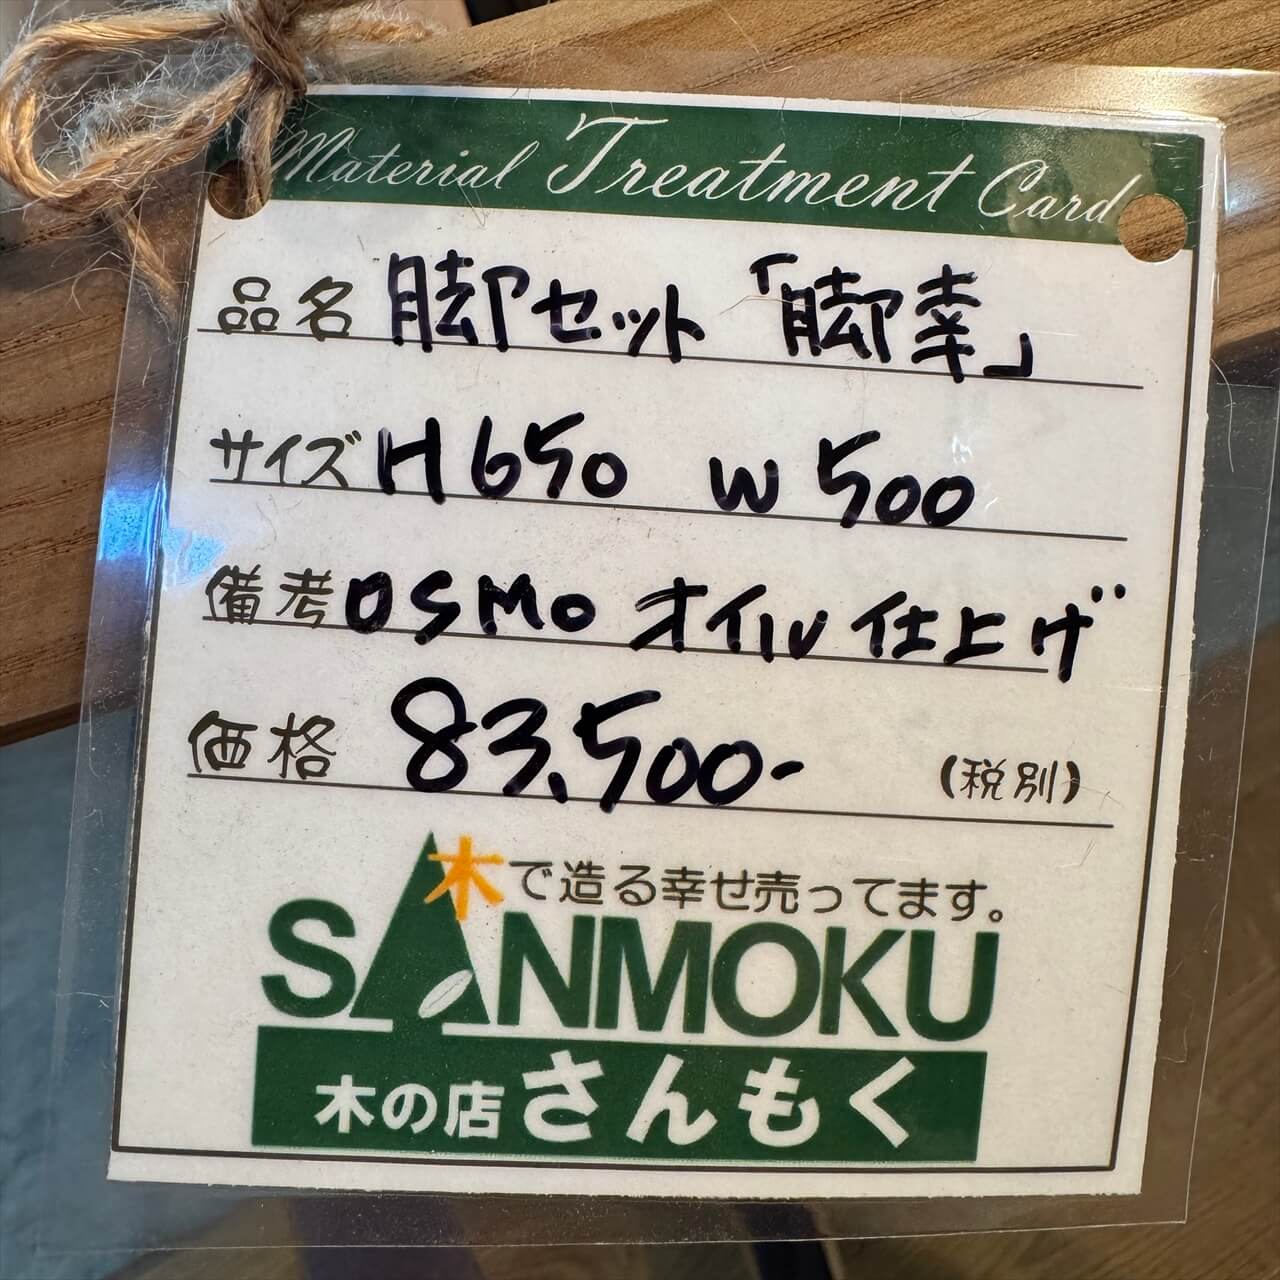 Material Treatment Card
品名 脚セット「脚幸」
サイズ H650 W500
備考 OSMO オイル仕上げ
価格 83,500- (税別)
木で造る幸せ売ってます。
SANMOKU
木の店 さんもく